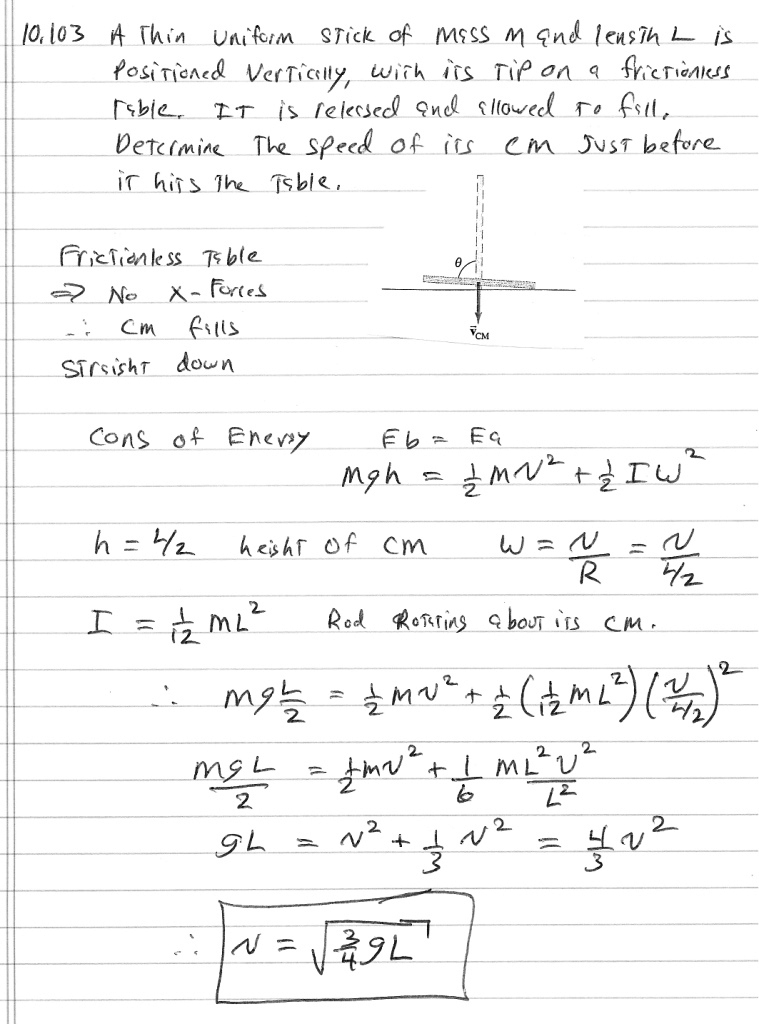 10.103 A Thin Uniform stick of mass M and length L is
positioned vertically, with its tip on a frictionless
table. IT is released and allowed to fall.
Determine The speed of its cm JUST before
it hits The Table.
θ
v⃗CM
Frictionless Table
⇒ No x-Forces
∴ cm falls
Straight down
Cons of Energy Eb = Ea
mgh = 1/2 mv² + 1/2 Iω²
h = L/2 height of cm ω = v/R = v/(L/2)
I = 1/12 mL² Rod Rotating about its cm.
∴ mg L/2 = 1/2 mv² + 1/2 (1/12 mL²)(v/(L/2))²
mgL/2 = 1/2 mv² + 1/6 mL²v²/L²
gL = v² + 1/3 v² = 4/3 v²
∴ v = √(3/4 gL)